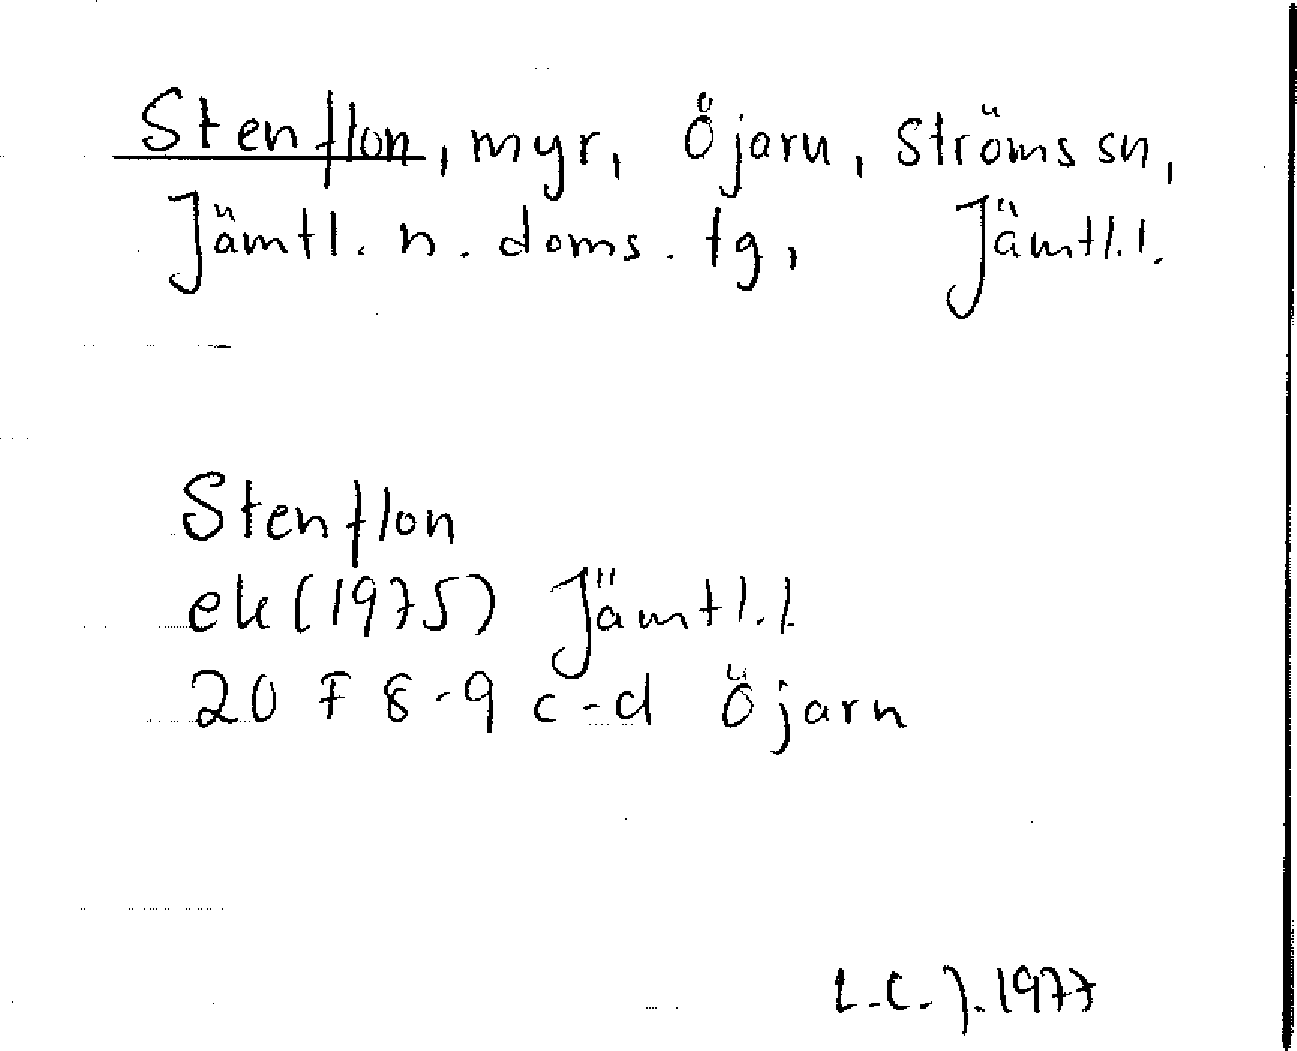 Stenflon, myr, Öjarn, Ströms sn,
Jämtl. n. doms. tg, Jämtl.l.
Stenflon
ek (1975) Jämtl.l
20 F 8-9 c-d Öjarn
L.C.J. 1977